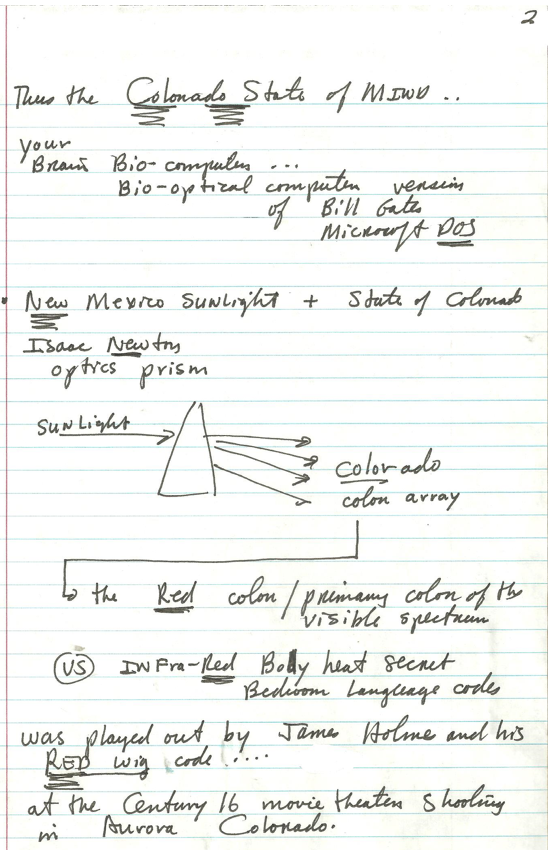 2
Thus the Colorado State of MIND ..
your
Brain Bio-computer ...
Bio-optical computer version
of Bill Gates
Microsoft DOS
• New Mexico SunLight + State of Colorado
Isaac Newton
optics prism
SunLight
Colorado
color array
the Red color / primary color of the
visible spectrum
VS INFra-Red Body heat secret
Bedroom Language codes
was played out by James Holme and his
RED wig code ....
at the Century 16 movie theater shooting
in Aurora Colorado.